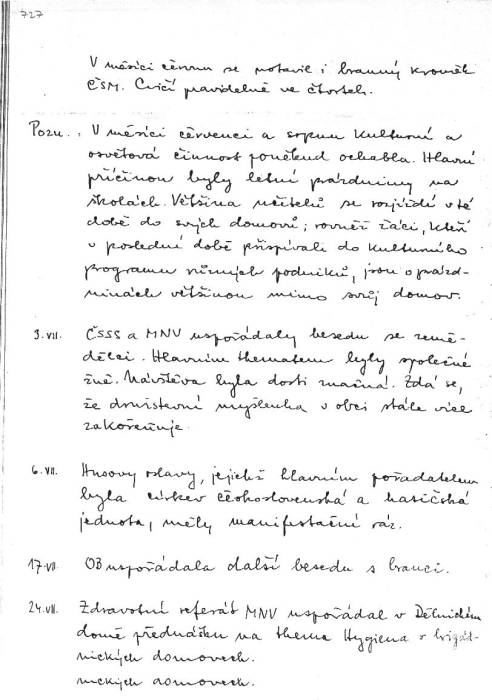 727
V měsíci červnu se ustavil i branný kroužek
ČSM. Cvičí pravidelně ve čtvrtek.
Pozn.: V měsíci červenci a srpnu kulturní a
osvětová činnost poněkud ochabla. Hlavní
příčinou byly letní prázdniny na
školách. Většina učitelů se rozjíždí v té
době do svých domovů; rovněž žáci, kteří
v poslední době přispívali do kulturního
programu různých podniků, jsou o prázd-
ninách většinou mimo svůj domov.
3.VII. ČSSS a MNV uspořádaly besedu se země-
dělci. Hlavním thematem byly společné
žně. Návštěva byla dosti značná. Zdá se,
že družstevní myšlenka v obci stále více
zakořeňuje.
6.VII. Husovy oslavy, jejichž hlavním pořadatelem
byla církev československá a hasičská
jednota, měly manifestační ráz.
17.VII. OB uspořádala další besedu s branci.
24.VII. Zdravotní referát MNV uspořádal v Dělnickém
domě přednášku na thema Hygiena v brigád-
nických domovech.
nických domovech.